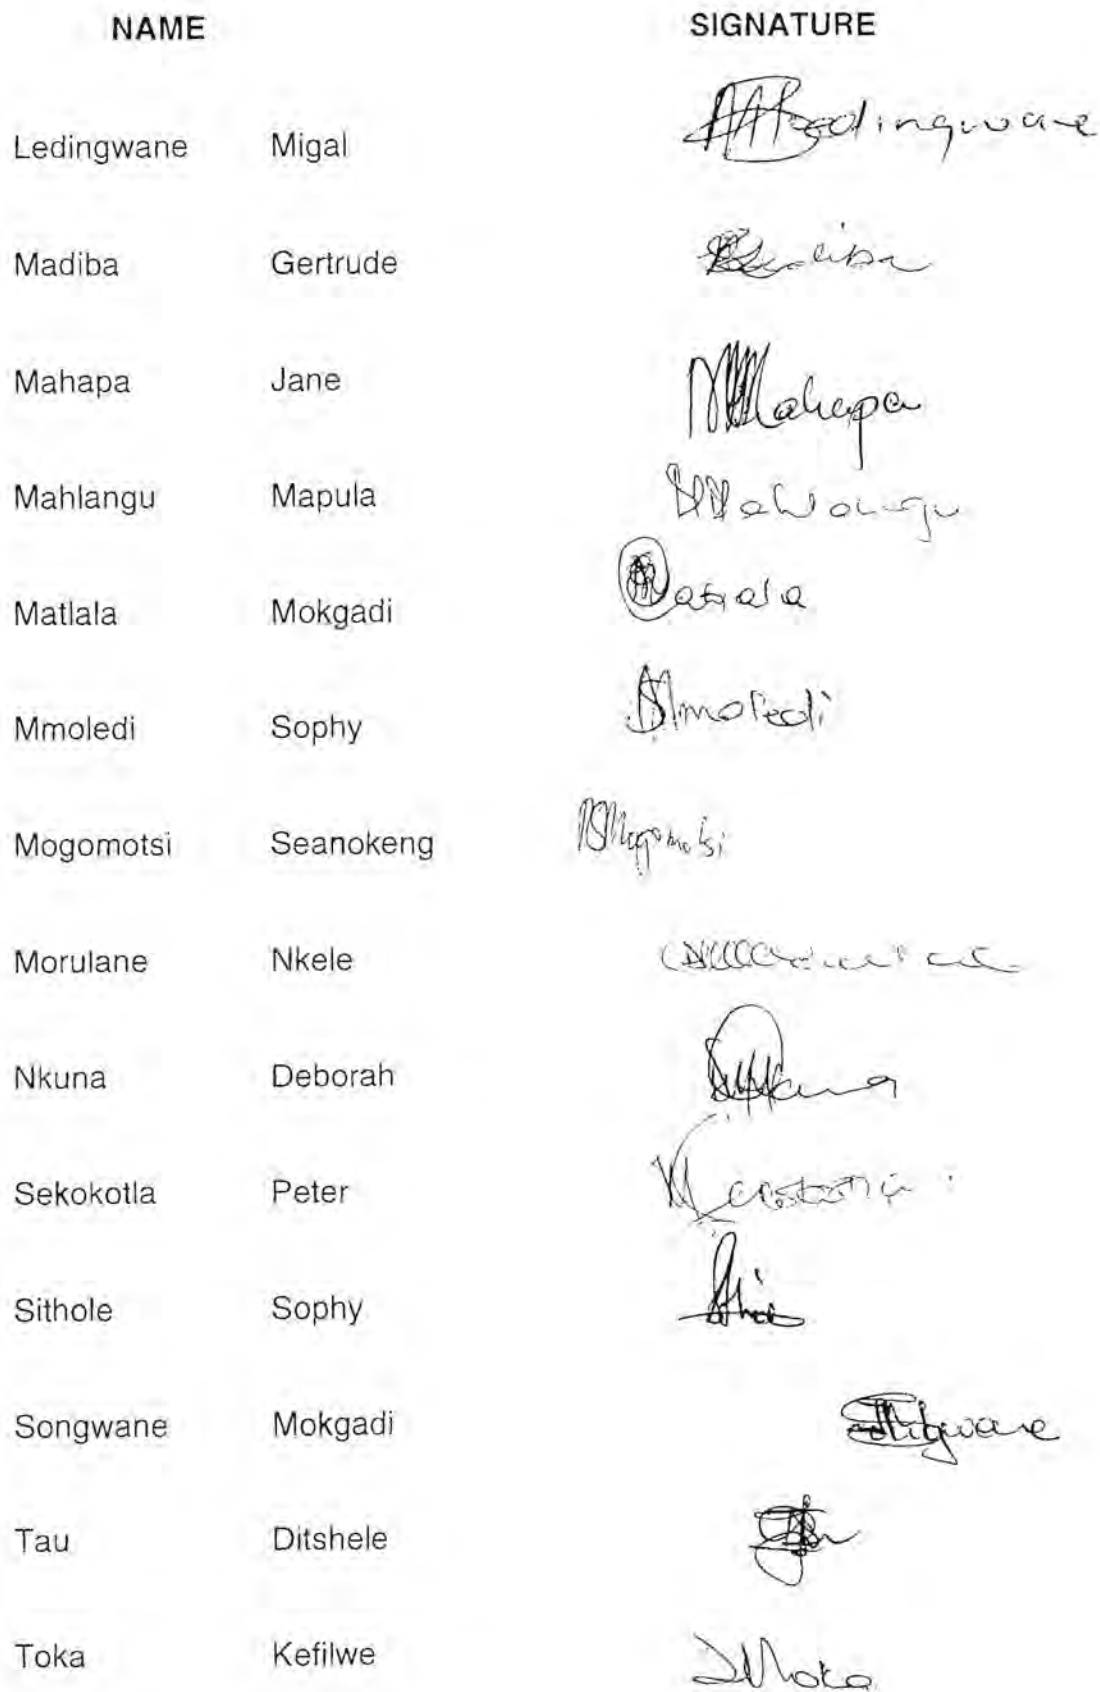 NAME SIGNATURE
Ledingwane Migal
Madiba Gertrude
Mahapa Jane Mahapa
Mahlangu Mapula
Matlala Mokgadi
Mmoledi Sophy Mmoledi
Mogomotsi Seanokeng Mogomotsi
Morulane Nkele
Nkuna Deborah
Sekokotla Peter
Sithole Sophy
Songwane Mokgadi
Tau Ditshele
Toka Kefilwe